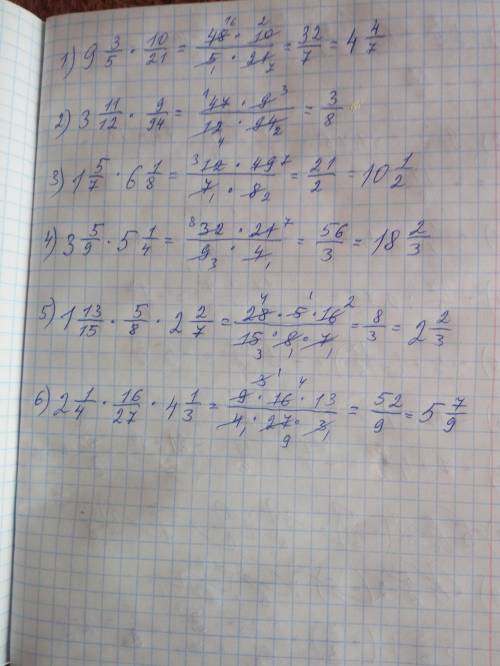 1) 9 3/5 · 10/21 = 48 · 10 / 5 · 21 = 32/7 = 4 4/7
2) 3 11/12 · 9/94 = 47 · 9 / 12 · 94 = 3/8
3) 1 5/7 · 6 1/8 = 12 · 49 / 7 · 8 = 21/2 = 10 1/2
4) 3 5/9 · 5 1/4 = 32 · 21 / 9 · 4 = 56/3 = 18 2/3
5) 1 13/15 · 5/8 · 2 2/7 = 28 · 5 · 16 / 15 · 8 · 7 = 8/3 = 2 2/3
6) 2 1/4 · 16/27 · 4 1/3 = 9 · 16 · 13 / 4 · 27 · 3 = 52/9 = 5 7/9